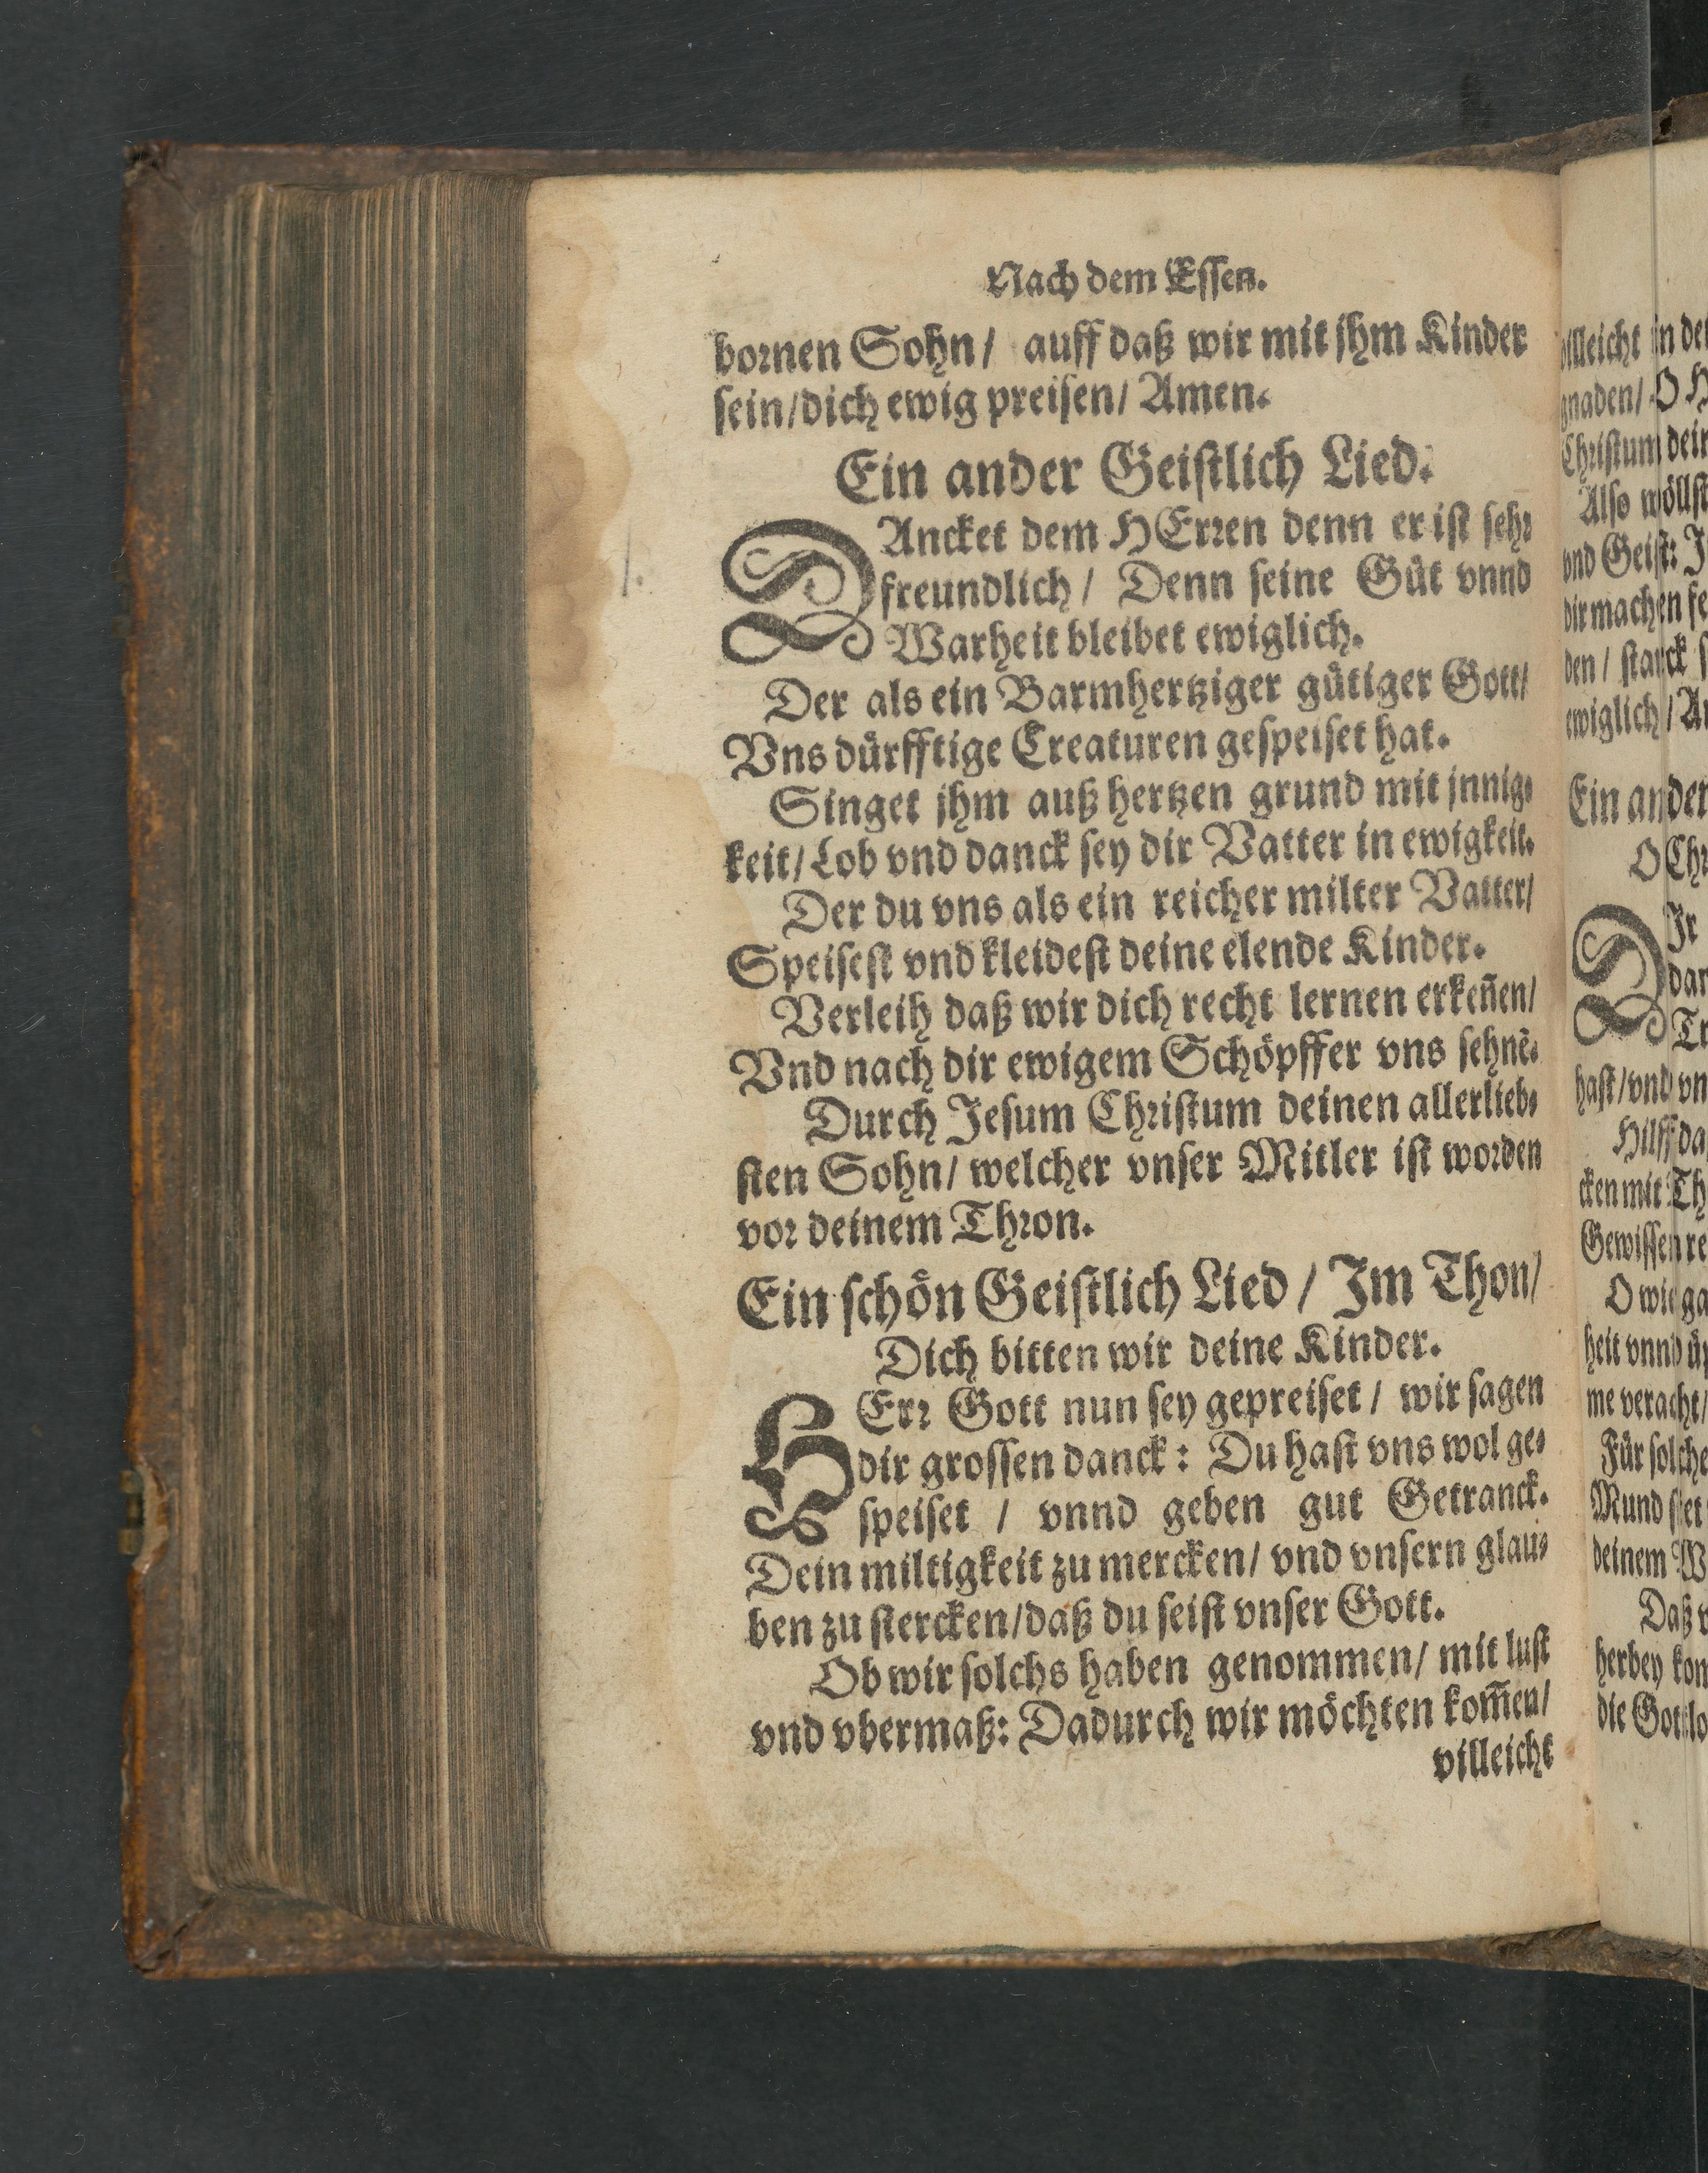 Nach dem Essen.
bornen Sohn / auff daß wir mit jhm Kinder
sein/dich ewig preisen/ Amen.
Ein ander Geistlich Lied.
DAncket dem HErren denn er ist sehr
freundlich / Denn seine Güt vnnd
Warheit bleibet ewiglich.
Der als ein Barmhertziger gütiger Gott/
Vns dürfftige Creaturen gespeiset hat.
Singet jhm auß hertzen grund mit jnnig-
keit/ Lob vnd danck sey dir Vatter in ewigkeit.
Der du vns als ein reicher milter Vatter/
Speisest vnd kleidest deine elende Kinder.
Verleih daß wir dich recht lernen erkeñen/
Vnd nach dir ewigem Schöpffer vns sehnē.
Durch Jesum Christum deinen allerlieb-
sten Sohn/ welcher vnser Mitler ist worden
vor deinem Thron.
Ein schön Geistlich Lied / Im Thon/
Dich bitten wir deine Kinder.
HErr Gott nun sey gepreiset / wir sagen
dir grossen danck : Du hast vns wol ge-
speiset / vnnd geben gut Getranck.
Dein miltigkeit zu mercken/ vnd vnsern glau-
ben zu stercken/daß du seist vnser Gott.
Ob wir solchs haben genommen/ mit lust
vnd vbermaß: Dadurch wir möchten kom̃en/
villeicht
villeicht in de
gnaden/ O H
Christum dein
Also wöllst
vnd Geist: J
dir machen fe
den / starck s
ewiglich / A
Ein ander
O Chr
DIr
dar
Tr
hast/vnd vn
Hilff da
cken mit Th
Gewissen re
O wie ga
heit vnnd üp
me veracht/
Für solche
Mund stet
deinem W
Daß
herbey kom
die Gottlo